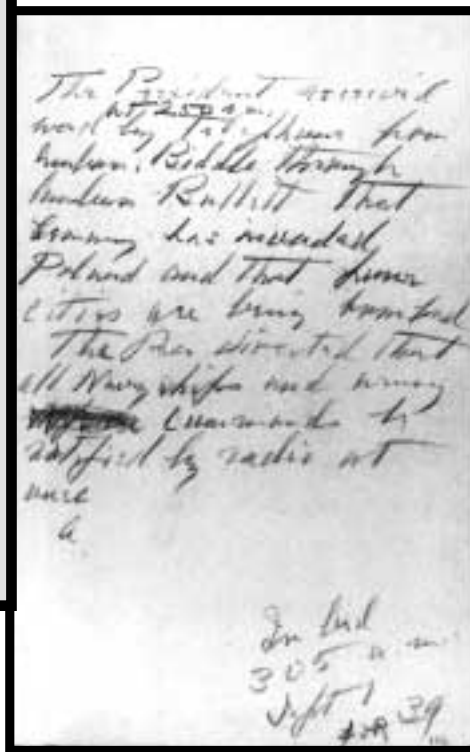 The President received
word at 2:50 a.m. by telephone from
Ambass. Biddle through
Ambassa Bullitt that
Germany has invaded
Poland and that four
cities are being bombed
The Pres directed that
all Navy ships and army
commands be
notified by radio at
once
In bed
3 05 a m
Sept 1 39
FDR